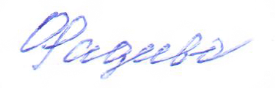 Фадиева